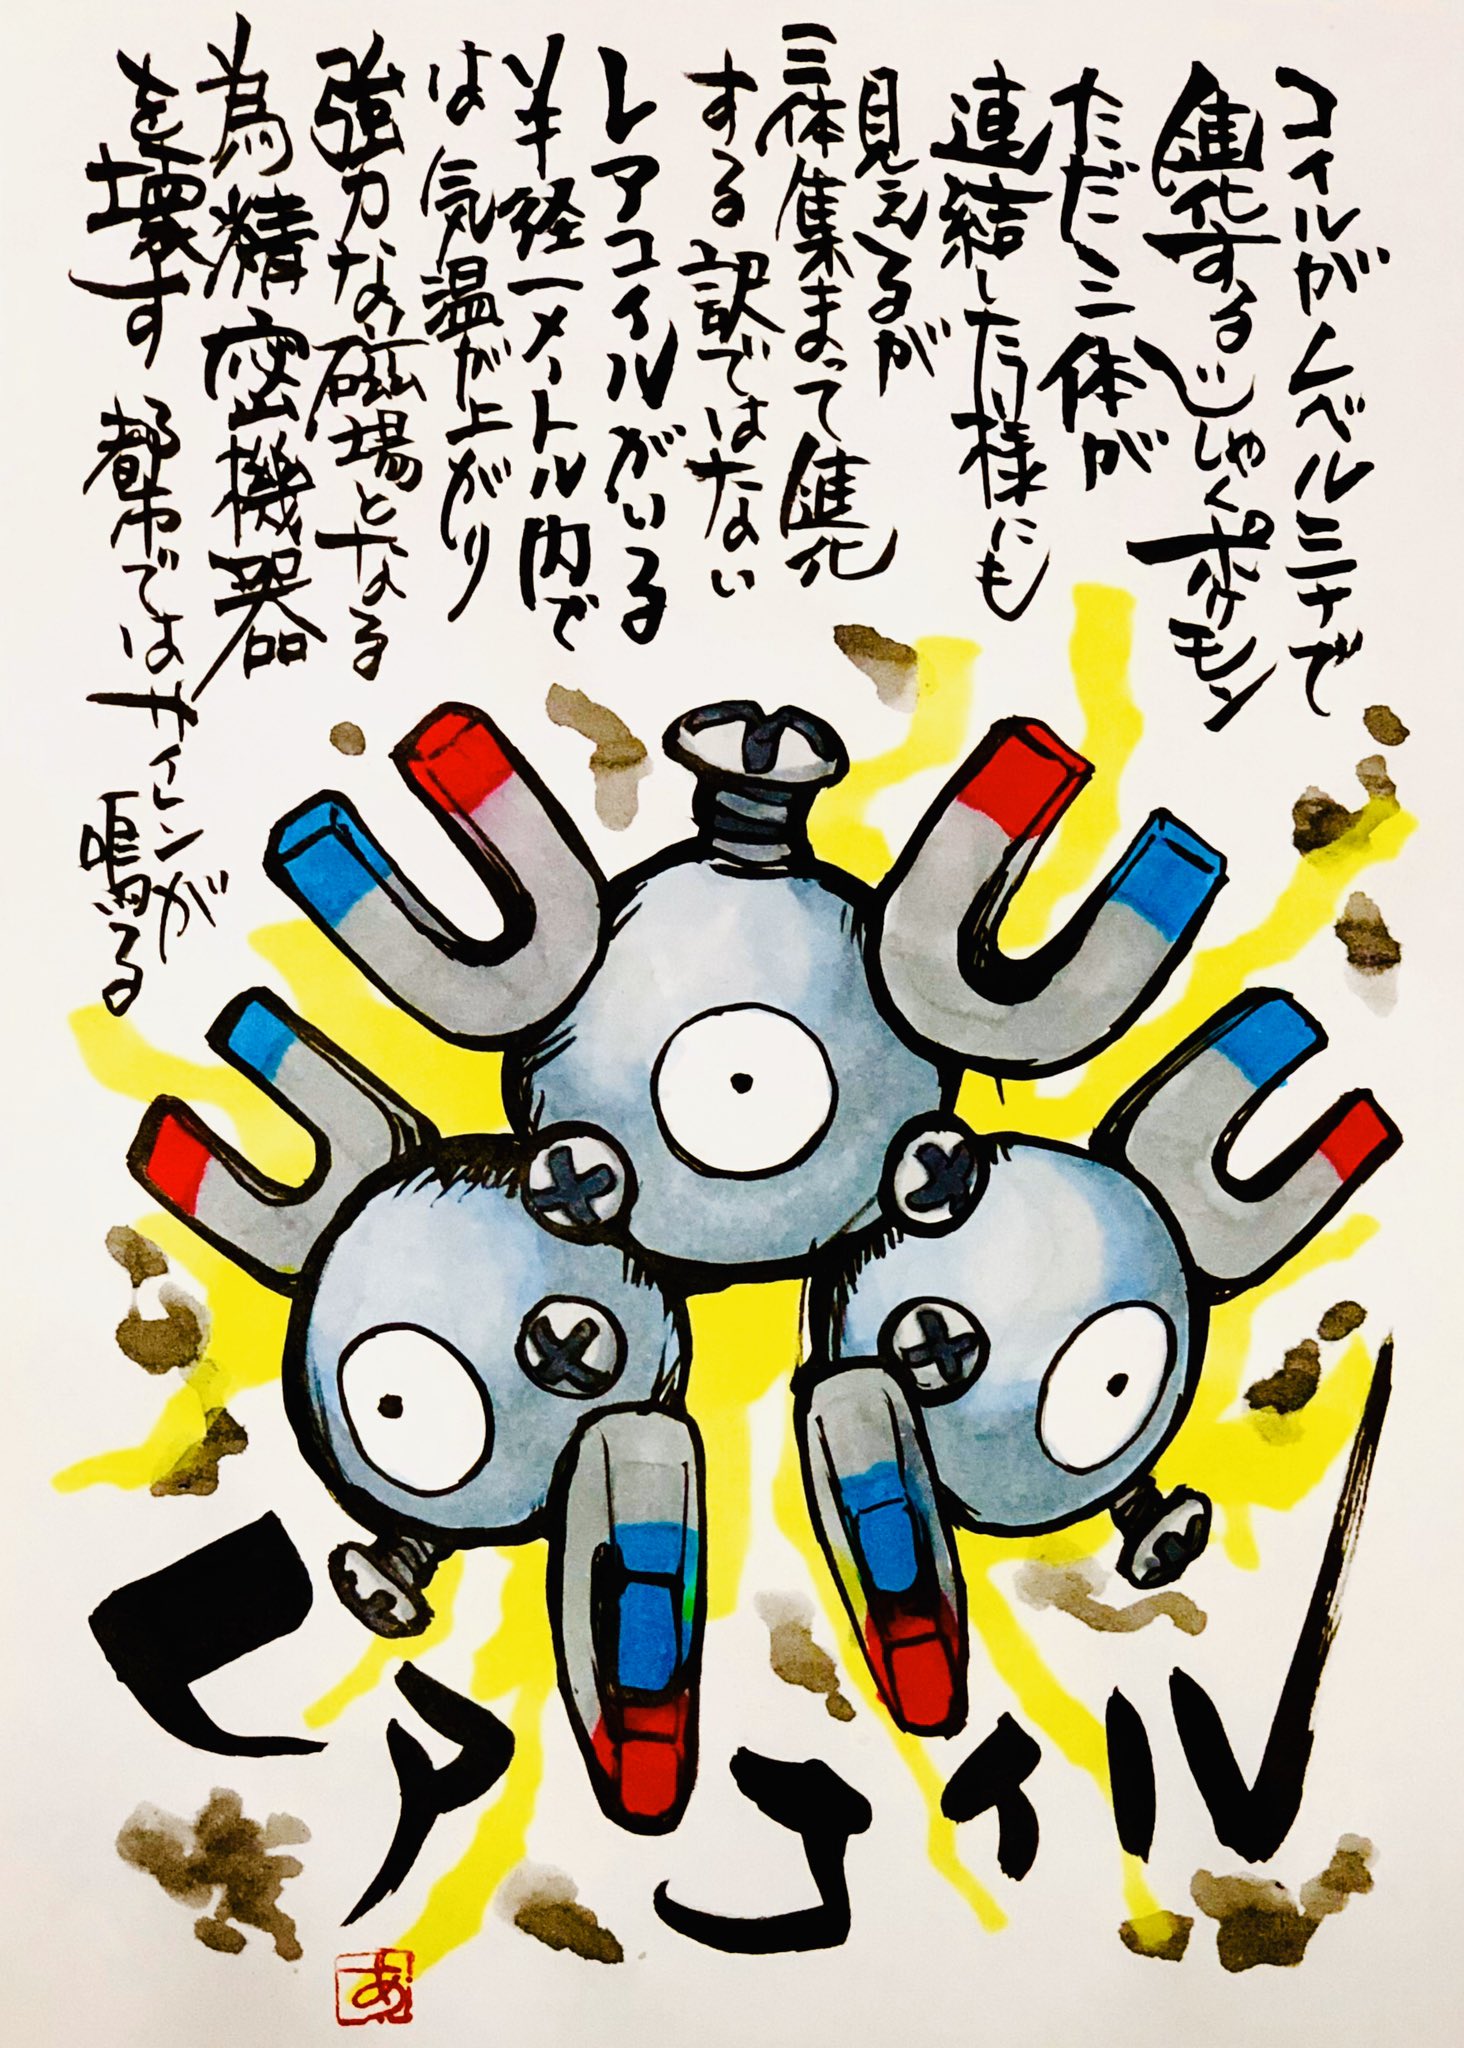 コイルがレベル三十で
進化するじしゃくポケモン
ただ三体が
連結した様にも
見えるが
三体集まって進化
する訳ではない
レアコイルがいる
半径一メートル内で
は気温が上がり
強力な磁場となる
為精密機器
を壊す 都市ではサイレンが鳴る
レアコイル
あ